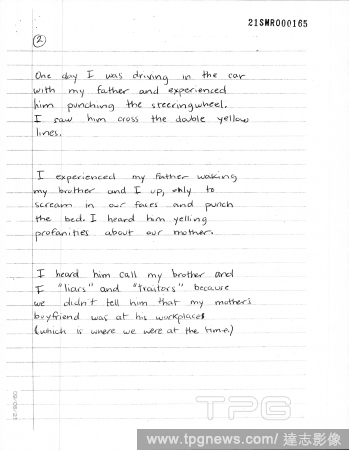 21SMRO00165
2
One day I was driving in the car
with my father and experienced
him punching the steeringwheel.
I saw him cross the double yellow
lines.
I experienced my father waking
my brother and I up, only to
scream in our faces and punch
the bed. I heard him yelling
profanities about our mother.
I heard him call my brother and
I "liars" and "traitors" because
we didn't tell him that my mother's
boyfriend was at his workplace
(which is where we were at the time.)
TPG
www.tpgnews.com/達志影像